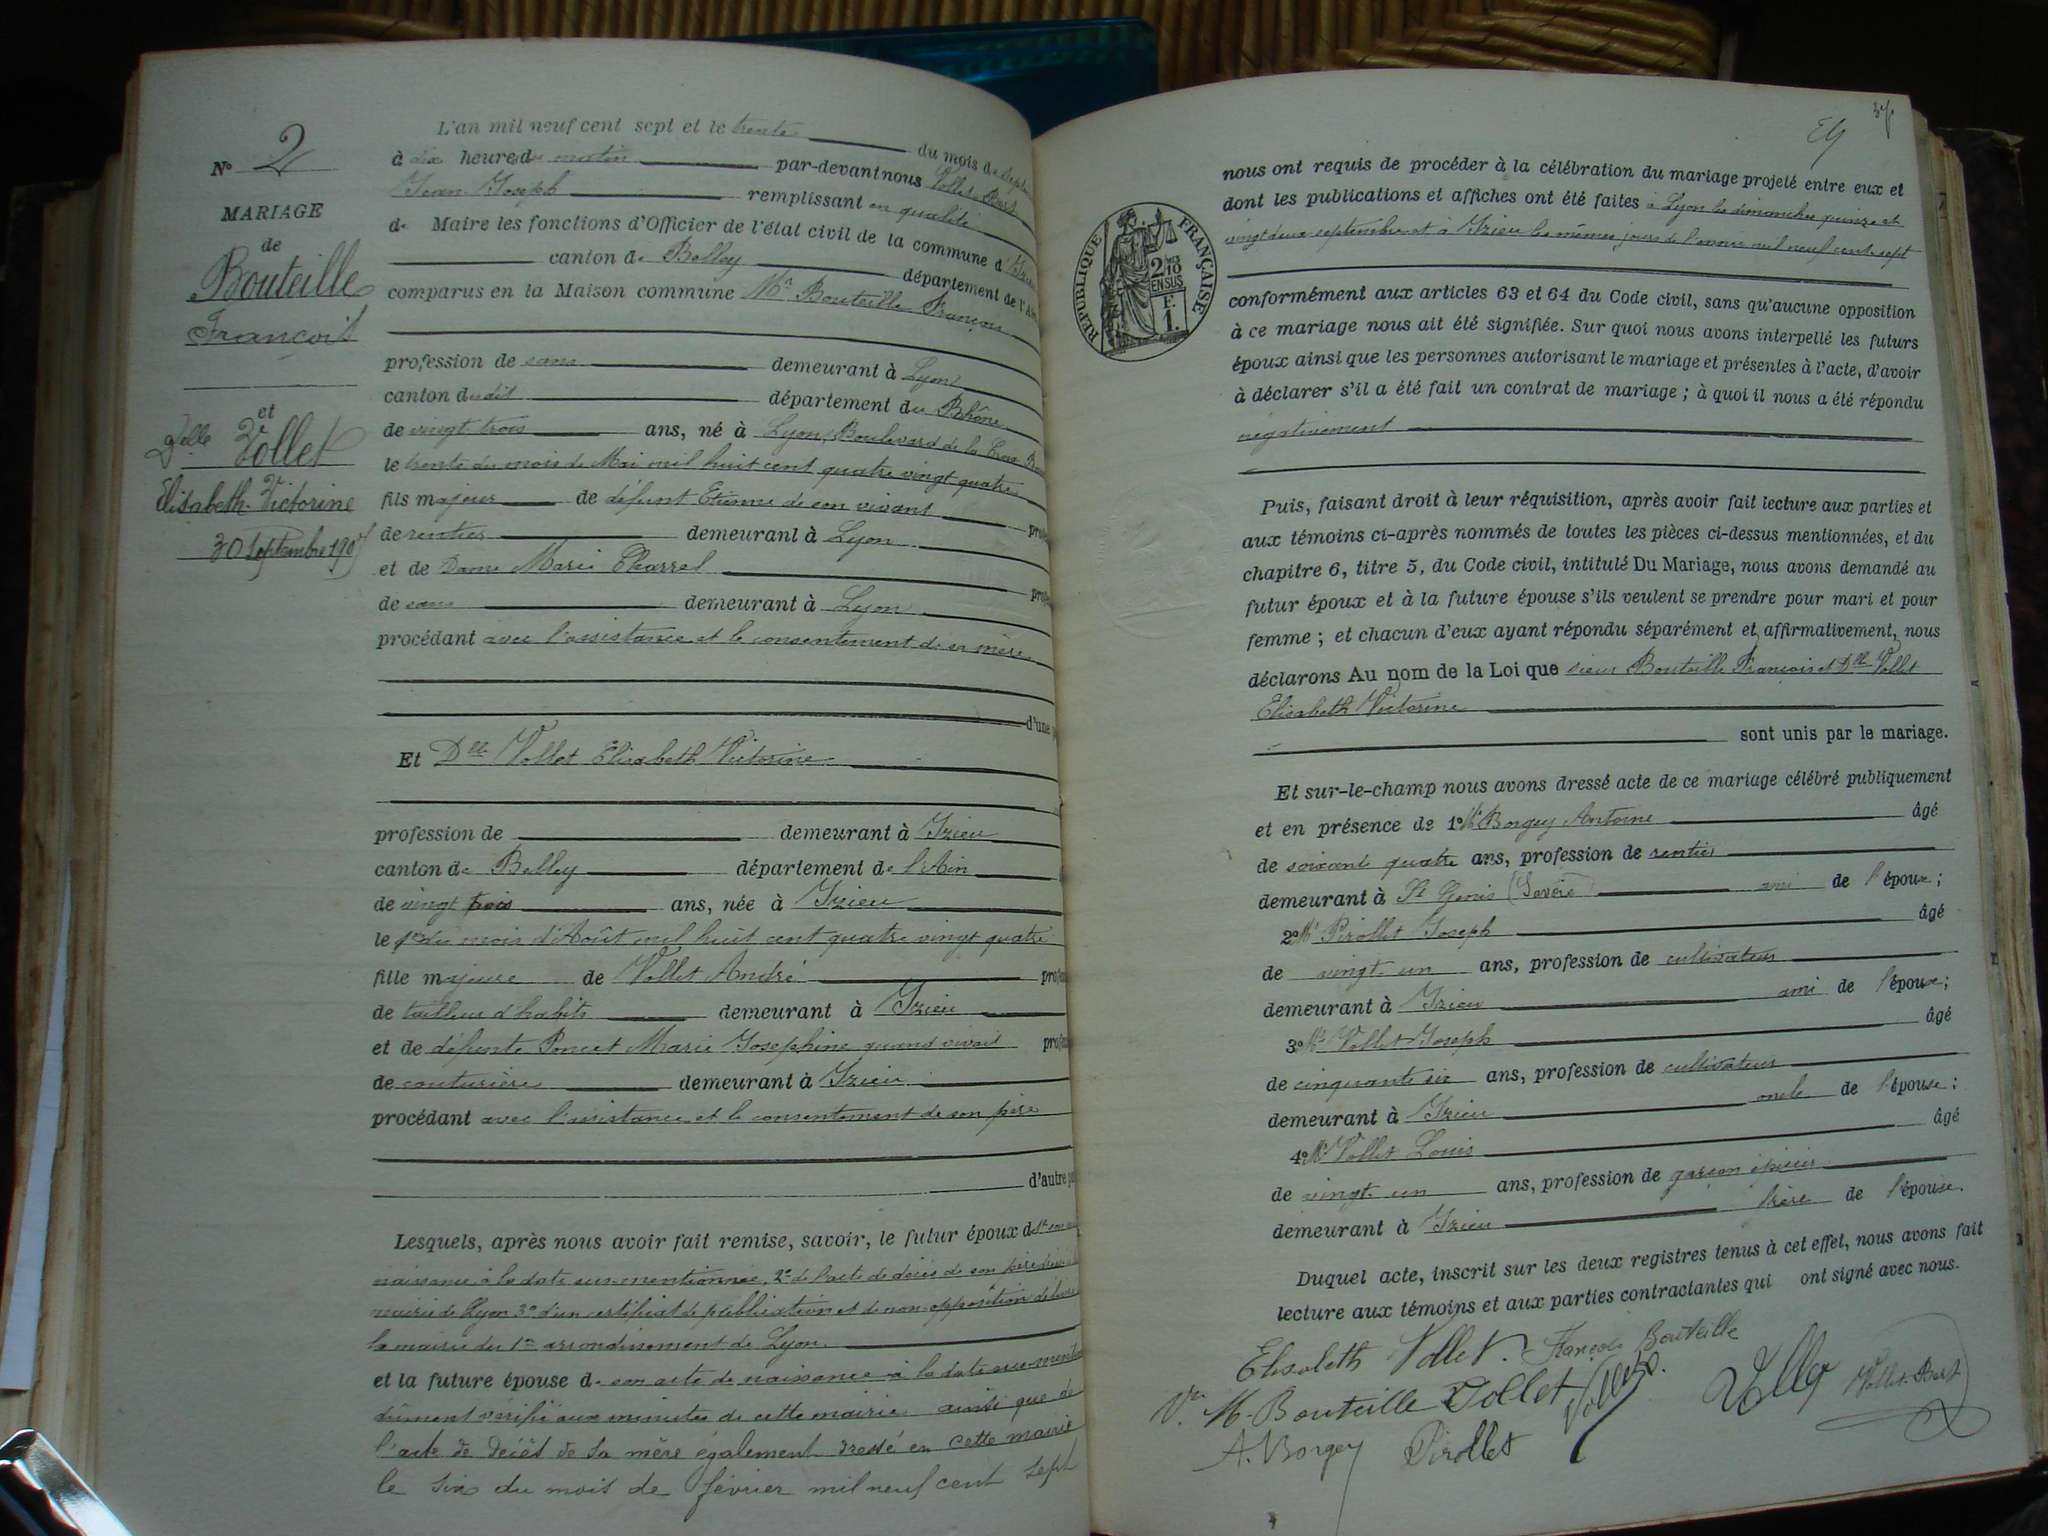 N° 2
MARIAGE
de
Bouteille
François
et
Delle Vollet
Elisabeth Victorine
30 Septembre 1907
L'an mil neuf cent sept et le trente du mois de Septembre
à dix heures du matin par-devant nous Vollet
Jean Joseph remplissant en qualité
de Maire les fonctions d'Officier de l'état civil de la commune d'Izieu
canton de Belley département de l'Ain
comparus en la Maison commune Mr Bouteille François
profession de sans demeurant à Lyon
canton dudit département du Rhône
de vingt trois ans, né à Lyon, Boulevard de la Croix
le trente du mois de Mai mil huit cent quatre vingt quatre
fils majeur de défunt Etienne de son vivant
de rentier demeurant à Lyon
et de Dame Marie Charrel
de sans demeurant à Lyon
procédant avec l'assistance et le consentement de sa mère
d'une
Et Dlle Vollet Elisabeth Victorine
profession de demeurant à Izieu
canton de Belley département de l'Ain
de vingt trois ans, née à Izieu
le 1er du mois d'Août mil huit cent quatre vingt quatre
fille majeure de Vollet André
de tailleur d'habits demeurant à Izieu
et de défunte Poncet Marie Josephine quand vivait
de couturière demeurant à Izieu
procédant avec l'assistance et le consentement de son père
d'autre
Lesquels, après nous avoir fait remise, savoir, le futur époux de 1°
naissance à la date sus-mentionnée, 2° de l'acte de décès de son père
mairie de Lyon 3° d'un certificat de publication et de non opposition délivré
la mairie du 1er arrondissement de Lyon
et la future épouse de son acte de naissance à la date sus-
dûment vérifié aux minutes de cette mairie ainsi que de
l'acte de décès de sa mère également dressé en cette mairie
le six du mois de février mil neuf cent sept
37
nous ont requis de procéder à la célébration du mariage projeté entre eux et
dont les publications et affiches ont été faites à Lyon les dimanches quinze et
vingt deux septembre et à Izieu les mêmes jours de l'année mil neuf cent sept
RÉPUBLIQUE FRANÇAISE
2/10 EN SUS
F. 1.
conformément aux articles 63 et 64 du Code civil, sans qu'aucune opposition
à ce mariage nous ait été signifiée. Sur quoi nous avons interpellé les futurs
époux ainsi que les personnes autorisant le mariage et présentes à l'acte, d'avoir
à déclarer s'il a été fait un contrat de mariage ; à quoi il nous a été répondu
négativement
Puis, faisant droit à leur réquisition, après avoir fait lecture aux parties et
aux témoins ci-après nommés de toutes les pièces ci-dessus mentionnées, et du
chapitre 6, titre 5, du Code civil, intitulé Du Mariage, nous avons demandé au
futur époux et à la future épouse s'ils veulent se prendre pour mari et pour
femme ; et chacun d'eux ayant répondu séparément et affirmativement, nous
déclarons Au nom de la Loi que sieur Bouteille François et Dlle Vollet
Elisabeth Victorine
sont unis par le mariage.
Et sur-le-champ nous avons dressé acte de ce mariage célébré publiquement
et en présence de 1° Mr Borgey Antoine âgé
de soixante quatre ans, profession de rentier
demeurant à St Genis (Savoie) ami de l'époux ;
2° Mr Pirollet Joseph âgé
de vingt un ans, profession de cultivateur
demeurant à Izieu ami de l'épouse ;
3° Mr Vollet Joseph âgé
de cinquante six ans, profession de cultivateur
demeurant à Izieu oncle de l'épouse ;
4° Mr Vollet Louis âgé
de vingt un ans, profession de garçon épicier
demeurant à Izieu frère de l'épouse.
Duquel acte, inscrit sur les deux registres tenus à cet effet, nous avons fait
lecture aux témoins et aux parties contractantes qui ont signé avec nous.
Elisabeth Vollet. François Bouteille
Ve M. Bouteille Vollet
A. Borgey Pirollet